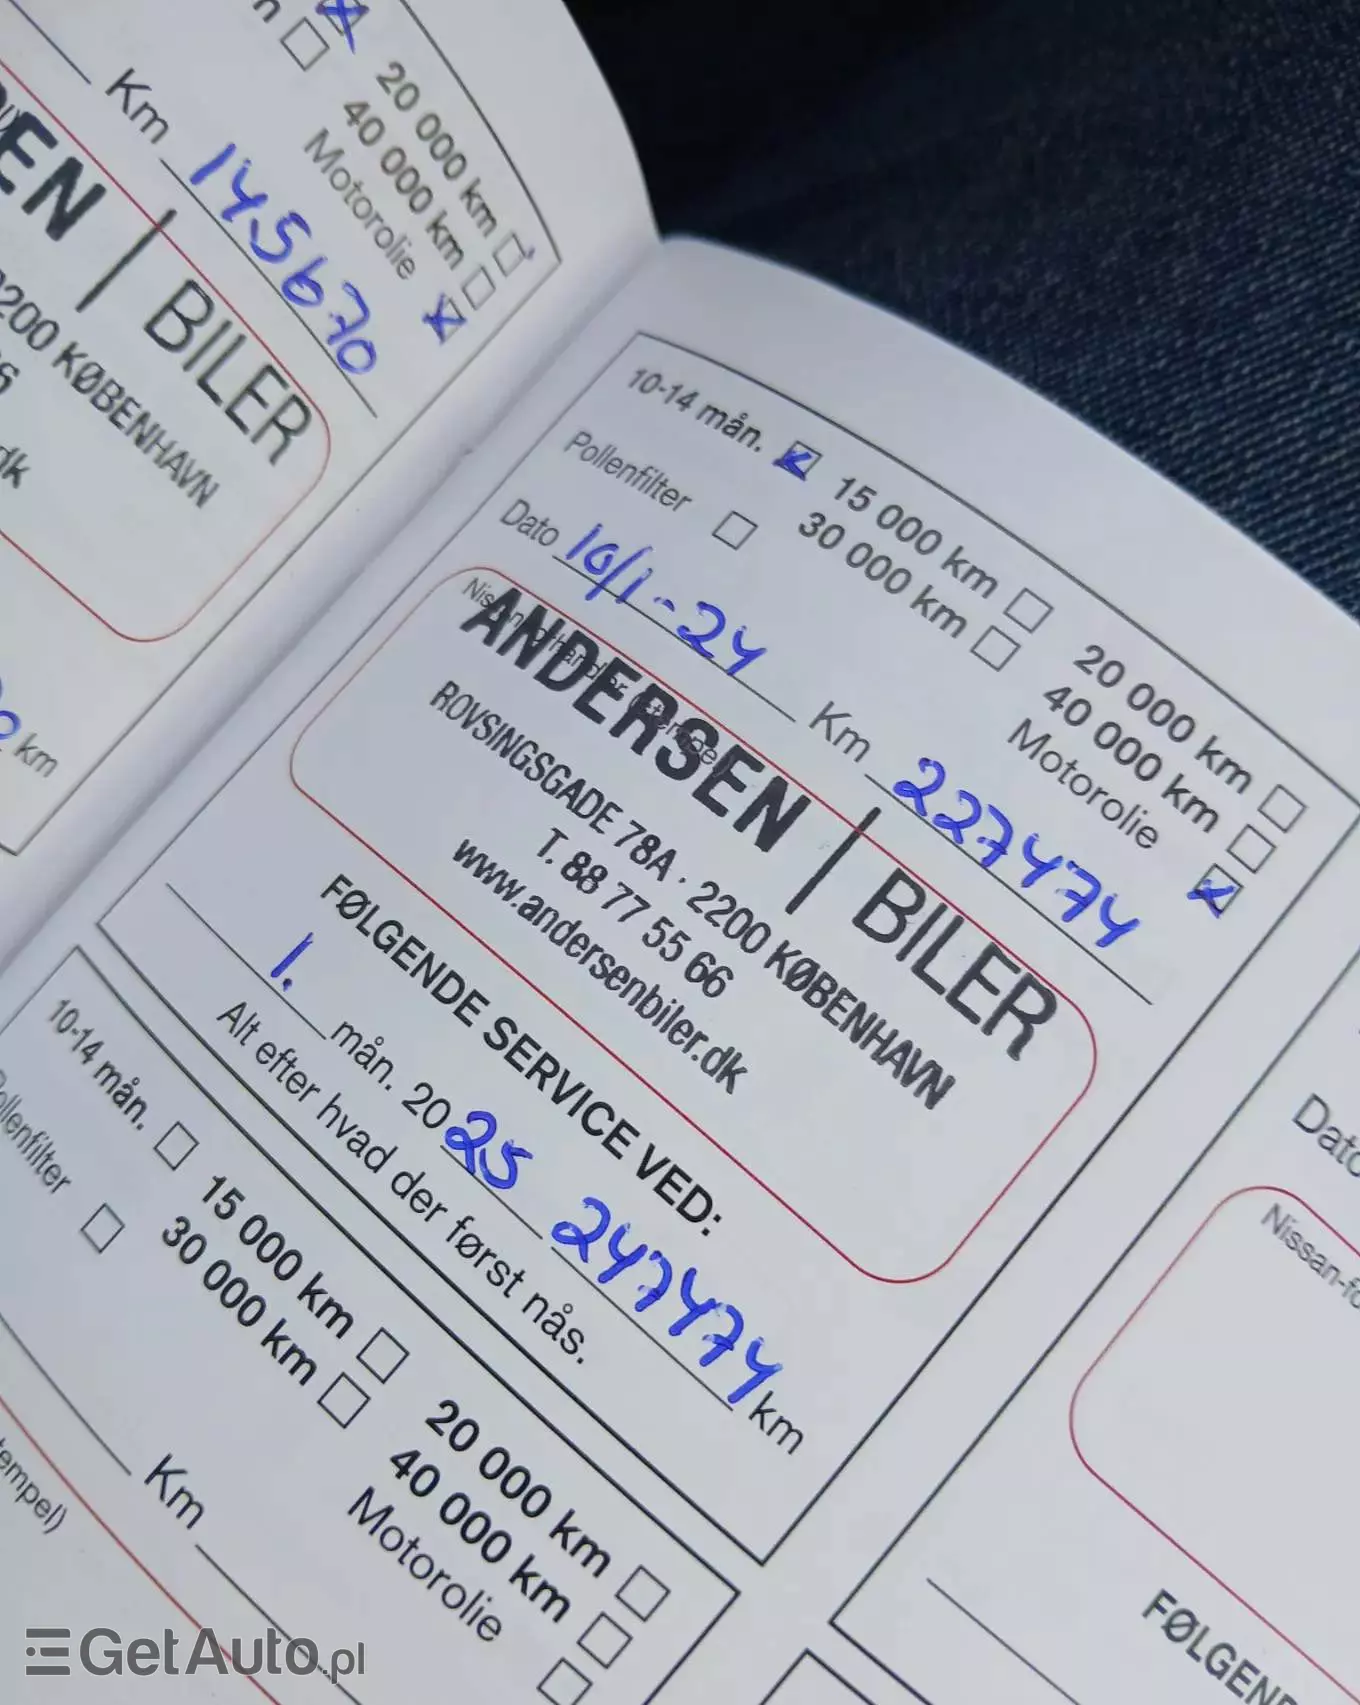 20 000 km
40 000 km
Motorolie
Km 145670
EN | BILER
2200 KØBENHAVN
6
dk
km
10-14 mån.
15 000 km
20 000 km
Pollenfilter
30 000 km
40 000 km
Motorolie
Dato 10/1-24 Km 227474
ANDERSEN | BILER
ROVSINGSGADE 78A · 2200 KØBENHAVN
T. 88 77 55 66
www.andersenbiler.dk
FØLGENDE SERVICE VED:
1. mån. 2025 247474 km
Alt efter hvad der først nås.
10-14 mån.
15 000 km
20 000 km
ollenfilter
30 000 km
40 000 km
Motorolie
Km
tempel)
Dato
Nissan-fo
FØLGEND
GetAuto.pl